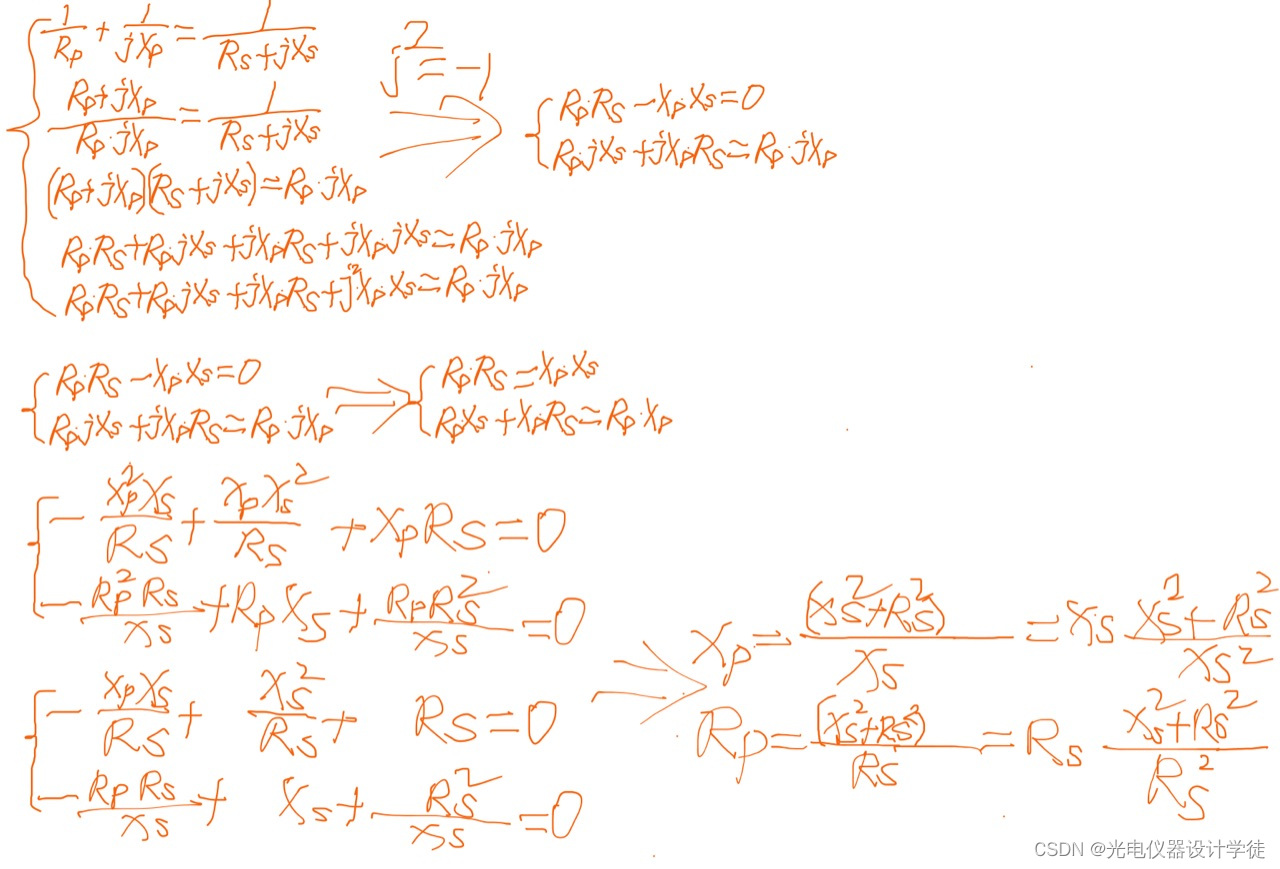 1/Rp + 1/jXp = 1/(Rs+jXs)
(Rp+jXp)/(Rp·jXp) = 1/(Rs+jXs)
(Rp+jXp)(Rs+jXs)=Rp·jXp
Rp·Rs+Rp·jXs+jXp·Rs+jXp·jXs=Rp·jXp
Rp·Rs+Rp·jXs+jXp·Rs+j²Xp·Xs=Rp·jXp
j²=-1
Rp·Rs-Xp·Xs=0
Rp·jXs+jXp·Rs=Rp·jXp
Rp·Rs-Xp·Xs=0
Rp·jXs+jXp·Rs=Rp·jXp
Rp·Rs=Xp·Xs
RpXs+Xp·Rs=Rp·Xp
-Xp²Xs/Rs + XpXs²/Rs + XpRs=0
-Rp²Rs/Xs + RpXs + RpRs²/Xs=0
-XpXs/Rs + Xs²/Rs + Rs=0
-RpRs/Xs + Xs + Rs²/Xs=0
Xp=(Xs²+Rs²)/Xs =Xs (Xs²+Rs²)/Xs²
Rp=(Xs²+Rs²)/Rs =Rs (Xs²+Rs²)/Rs²
CSDN @光电仪器设计学徒